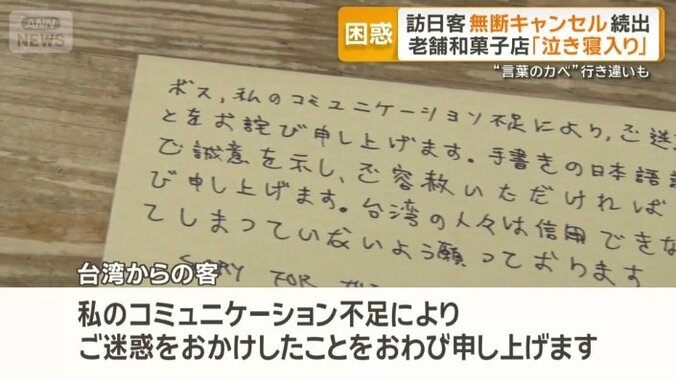 ANN
News
困惑
訪日客 無断キャンセル 続出
老舗和菓子店「泣き寝入り」
“言葉のカベ”行き違いも
ボス,私のコミュニケーション不足により,ご迷
とをお詫び申し上げます。手書きの日本語
で誠意を示し、ご容赦いただければ
び申し上げます。台湾の人々は信用できな
てしまっていないよう願っております
SORRY FOR
台湾からの客
私のコミュニケーション不足により
ご迷惑をおかけしたことをおわび申し上げます